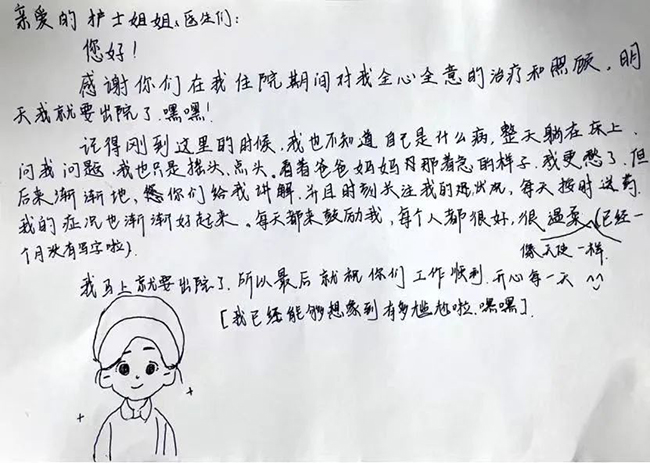 亲爱的护士姐姐、医生们:
您好!
感谢你们在我住院期间对我全心全意的治疗和照顾,明
天我就要出院了.嘿嘿!
记得刚到这里的时候,我也不知道自己是什么病,整天躺在床上.
问我问题.我也只是摇头、点头.看着爸爸妈妈那着急的样子.我更愁了.但
后来渐渐地,您你们给我讲解.并且时刻关注我的状况,每天按时送药.
我的症况也渐渐好起来。每天都来鼓励我,每个人都很好,很温柔.(已经一
个月没有写字啦).
像天使一样.
我马上就要出院了.所以最后就祝你们工作顺利.开心每一天
[我已经能够想象到有多尴尬啦.嘿嘿].